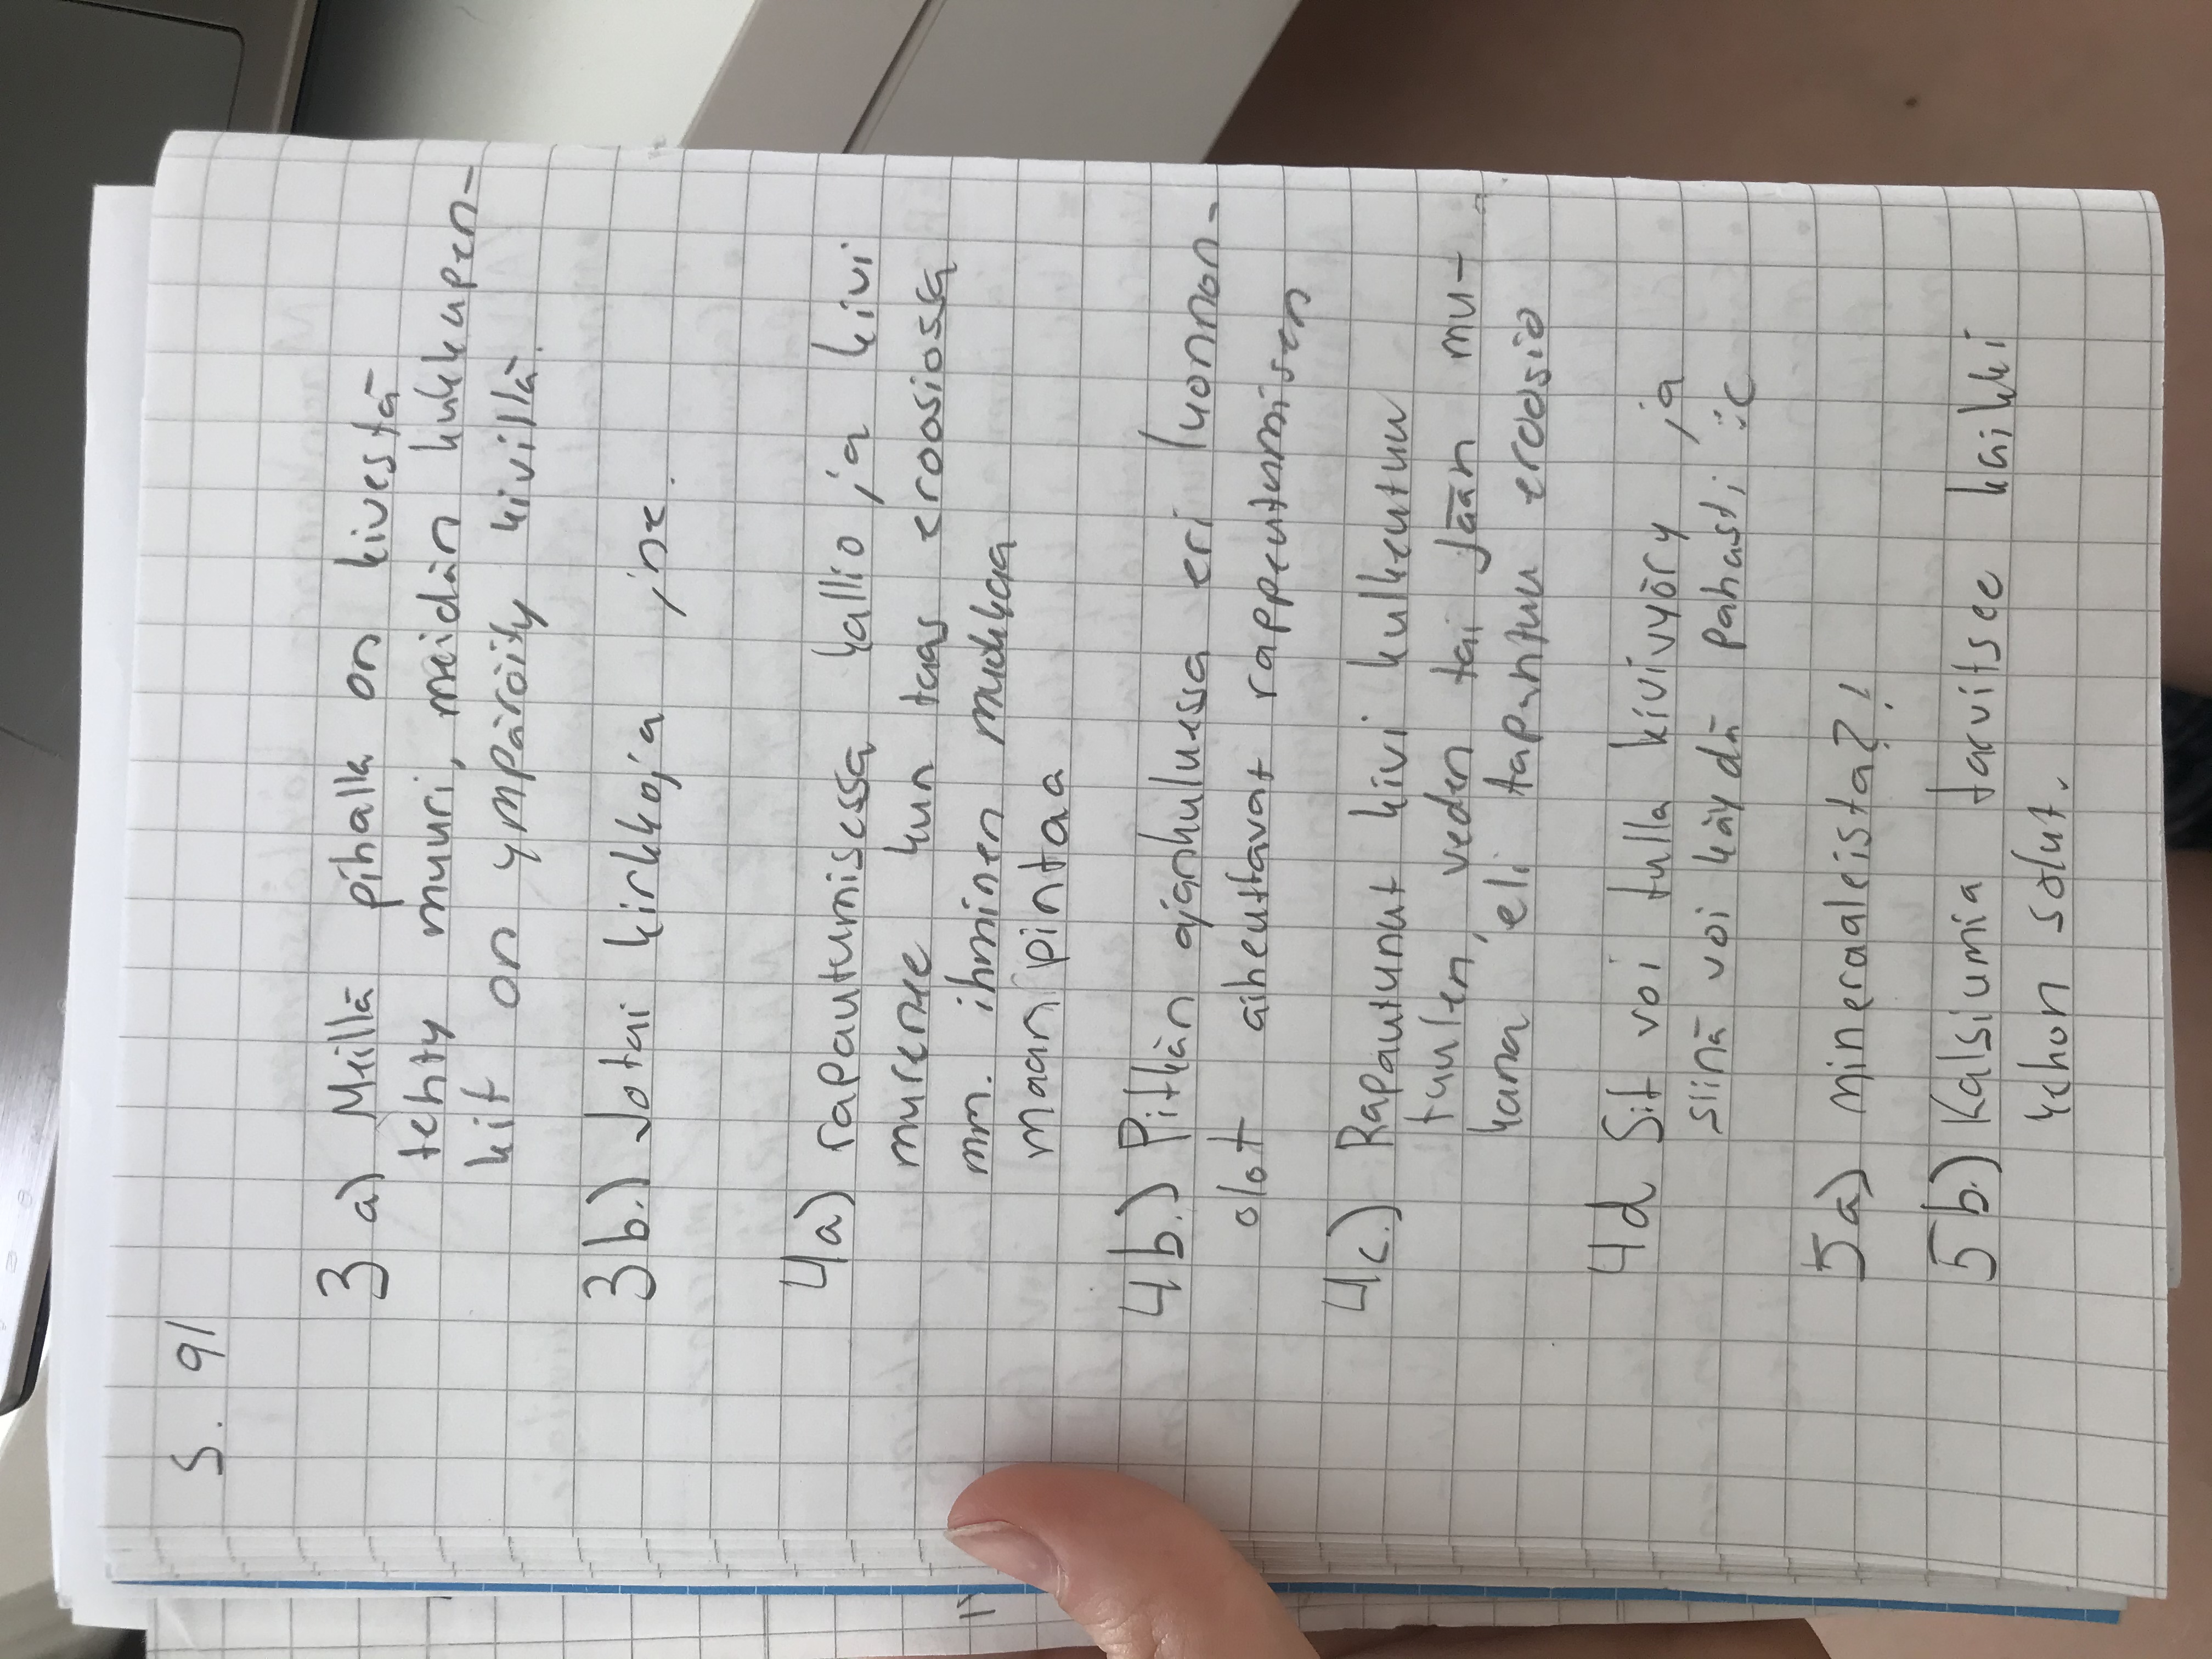 S. 91
3 a) Meillä pihalla on kivestä
tehty muuri, meidän kukkapen-
kit on ympäröity kivillä.
3 b.) Jotai kirkkoja jne.
4 a) rapautumisessa kallio ja kivi
murenee kun taas eroosiossa
mm. ihminen mukkaa
maan pintaa
4 b.) Pitkän ajankulussa eri luonnon-
olot aiheuttavat rappeutumisen
4 c.) Rapautunut kivi kulkeutuu
tuulen, veden tai Jään mu-
kana eli tapahtuu eroosio
4 d Sit voi tulla kivivyöry ja
siinä voi käydä pahasti :c
5 a) mineraaleista?!
5 b.) Kalsiumia tarvitsee kaikki
kehon solut.